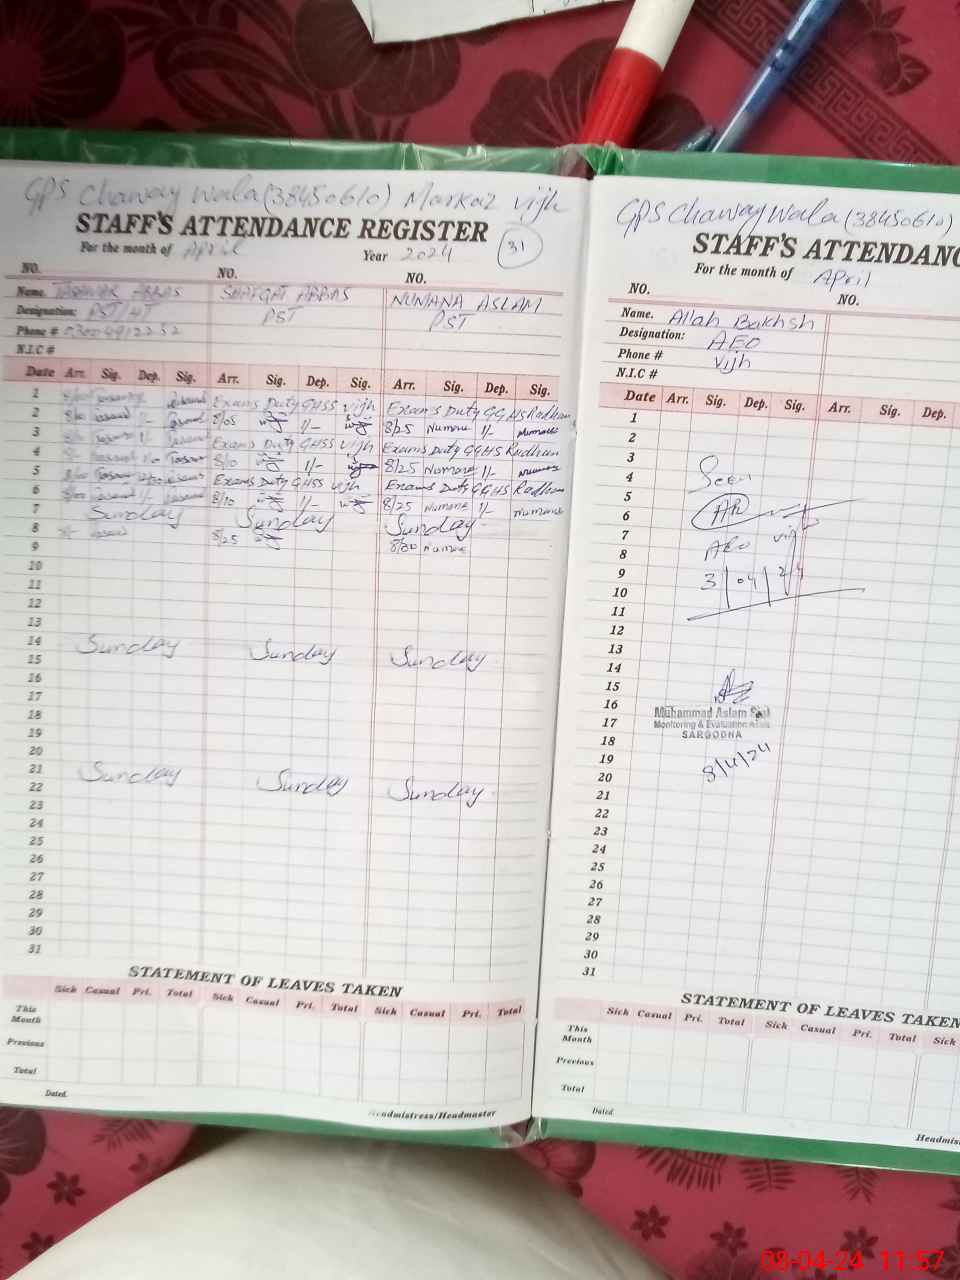 GPS Chaway Wala (38450610) Markaz Vijh
STAFF'S ATTENDANCE REGISTER
For the month of April Year 2024 31
NO. NO. NO.
Name. ABBAS SHAFQAT ABBAS NUMANA ASLAM
Designation: PST/HT PST PST
Phone # 03004912252
N.I.C #
Date Arr. Sig. Dep. Sig. Arr. Sig. Dep. Sig. Arr. Sig. Dep. Sig.
1 Exams Duty GHSS Vijh Exams Duty GGHS Radhan
2 8/05 1/- 8/25 Numana 1/- Numana
3 Exams Duty GHSS Vijh Exams Duty GGHS Radhan
4 8/10 1/- 8/25 Numana 1/- Numana
5 Exams Duty GHSS Vijh Exams Duty GGHS Radhan
6 8/10 1/- 8/25 Numana 1/- Numana
7 Sunday Sunday Sunday
8 8/- 8/25 8/00 Numana
9
10
11
12
13
14 Sunday Sunday Sunday
15
16
17
18
19
20
21 Sunday Sunday Sunday
22
23
24
25
26
27
28
29
30
31
STATEMENT OF LEAVES TAKEN
Sick Casual Pri. Total Sick Casual Pri. Total Sick Casual Pri. Total
This Month
Previous
Total
Dated.
Headmistress/Headmaster
GPS Chaway Wala (38450610)
STAFF'S ATTENDANC
For the month of April
NO. NO.
Name. Allah Bakhsh
Designation: AEO
Phone # Vijh
N.I.C #
Date Arr. Sig. Dep. Sig. Arr. Sig. Dep.
1
2
3
4 Seen
5
6 AB
7
8 AEO Vijh
9 3/04/24
10
11
12
13
14
15
16 Muhammad Aslam
17 Monitoring & Evaluation
18 SARGODHA
19 8/4/24
20
21
22
23
24
25
26
27
28
29
30
31
STATEMENT OF LEAVES TAKEN
Sick Casual Pri. Total Sick Casual Pri. Total Sick
This Month
Previous
Total
Dated.
Headmis
08-04-24 11:57